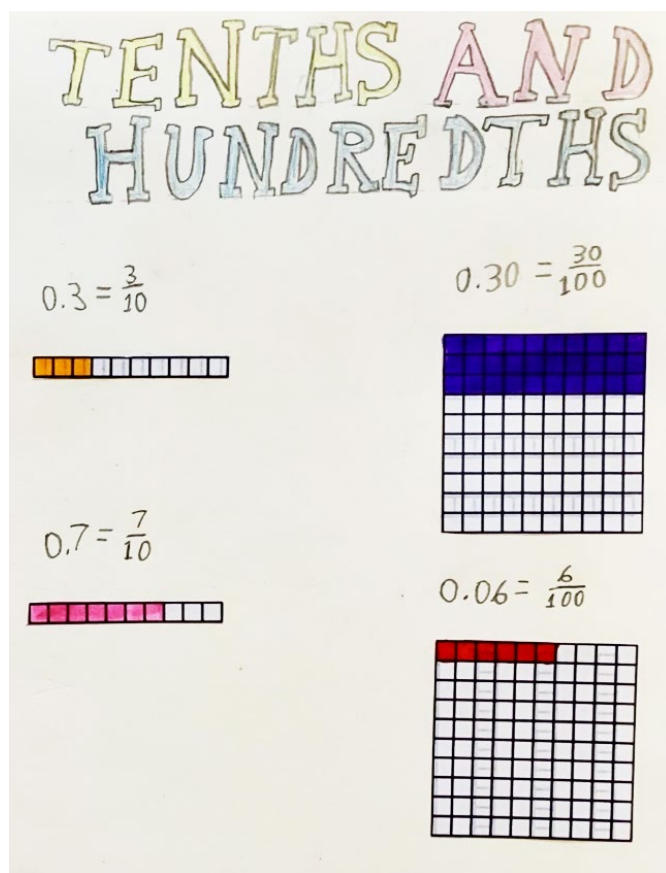 TENTHS AND
HUNDREDTHS
0.3 = 3/10
0.30 = 30/100
0.7 = 7/10
0.06 = 6/100